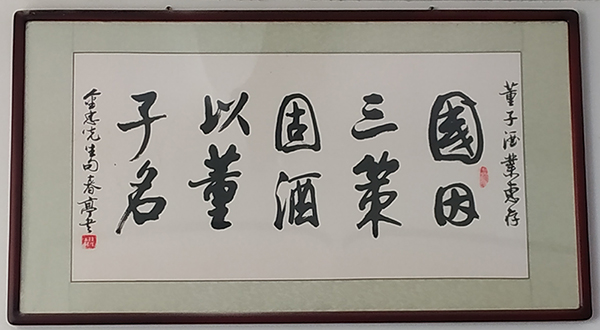 董子酒業惠存
國因
三策
固酒
以董
子名
金忠先生句春亭书